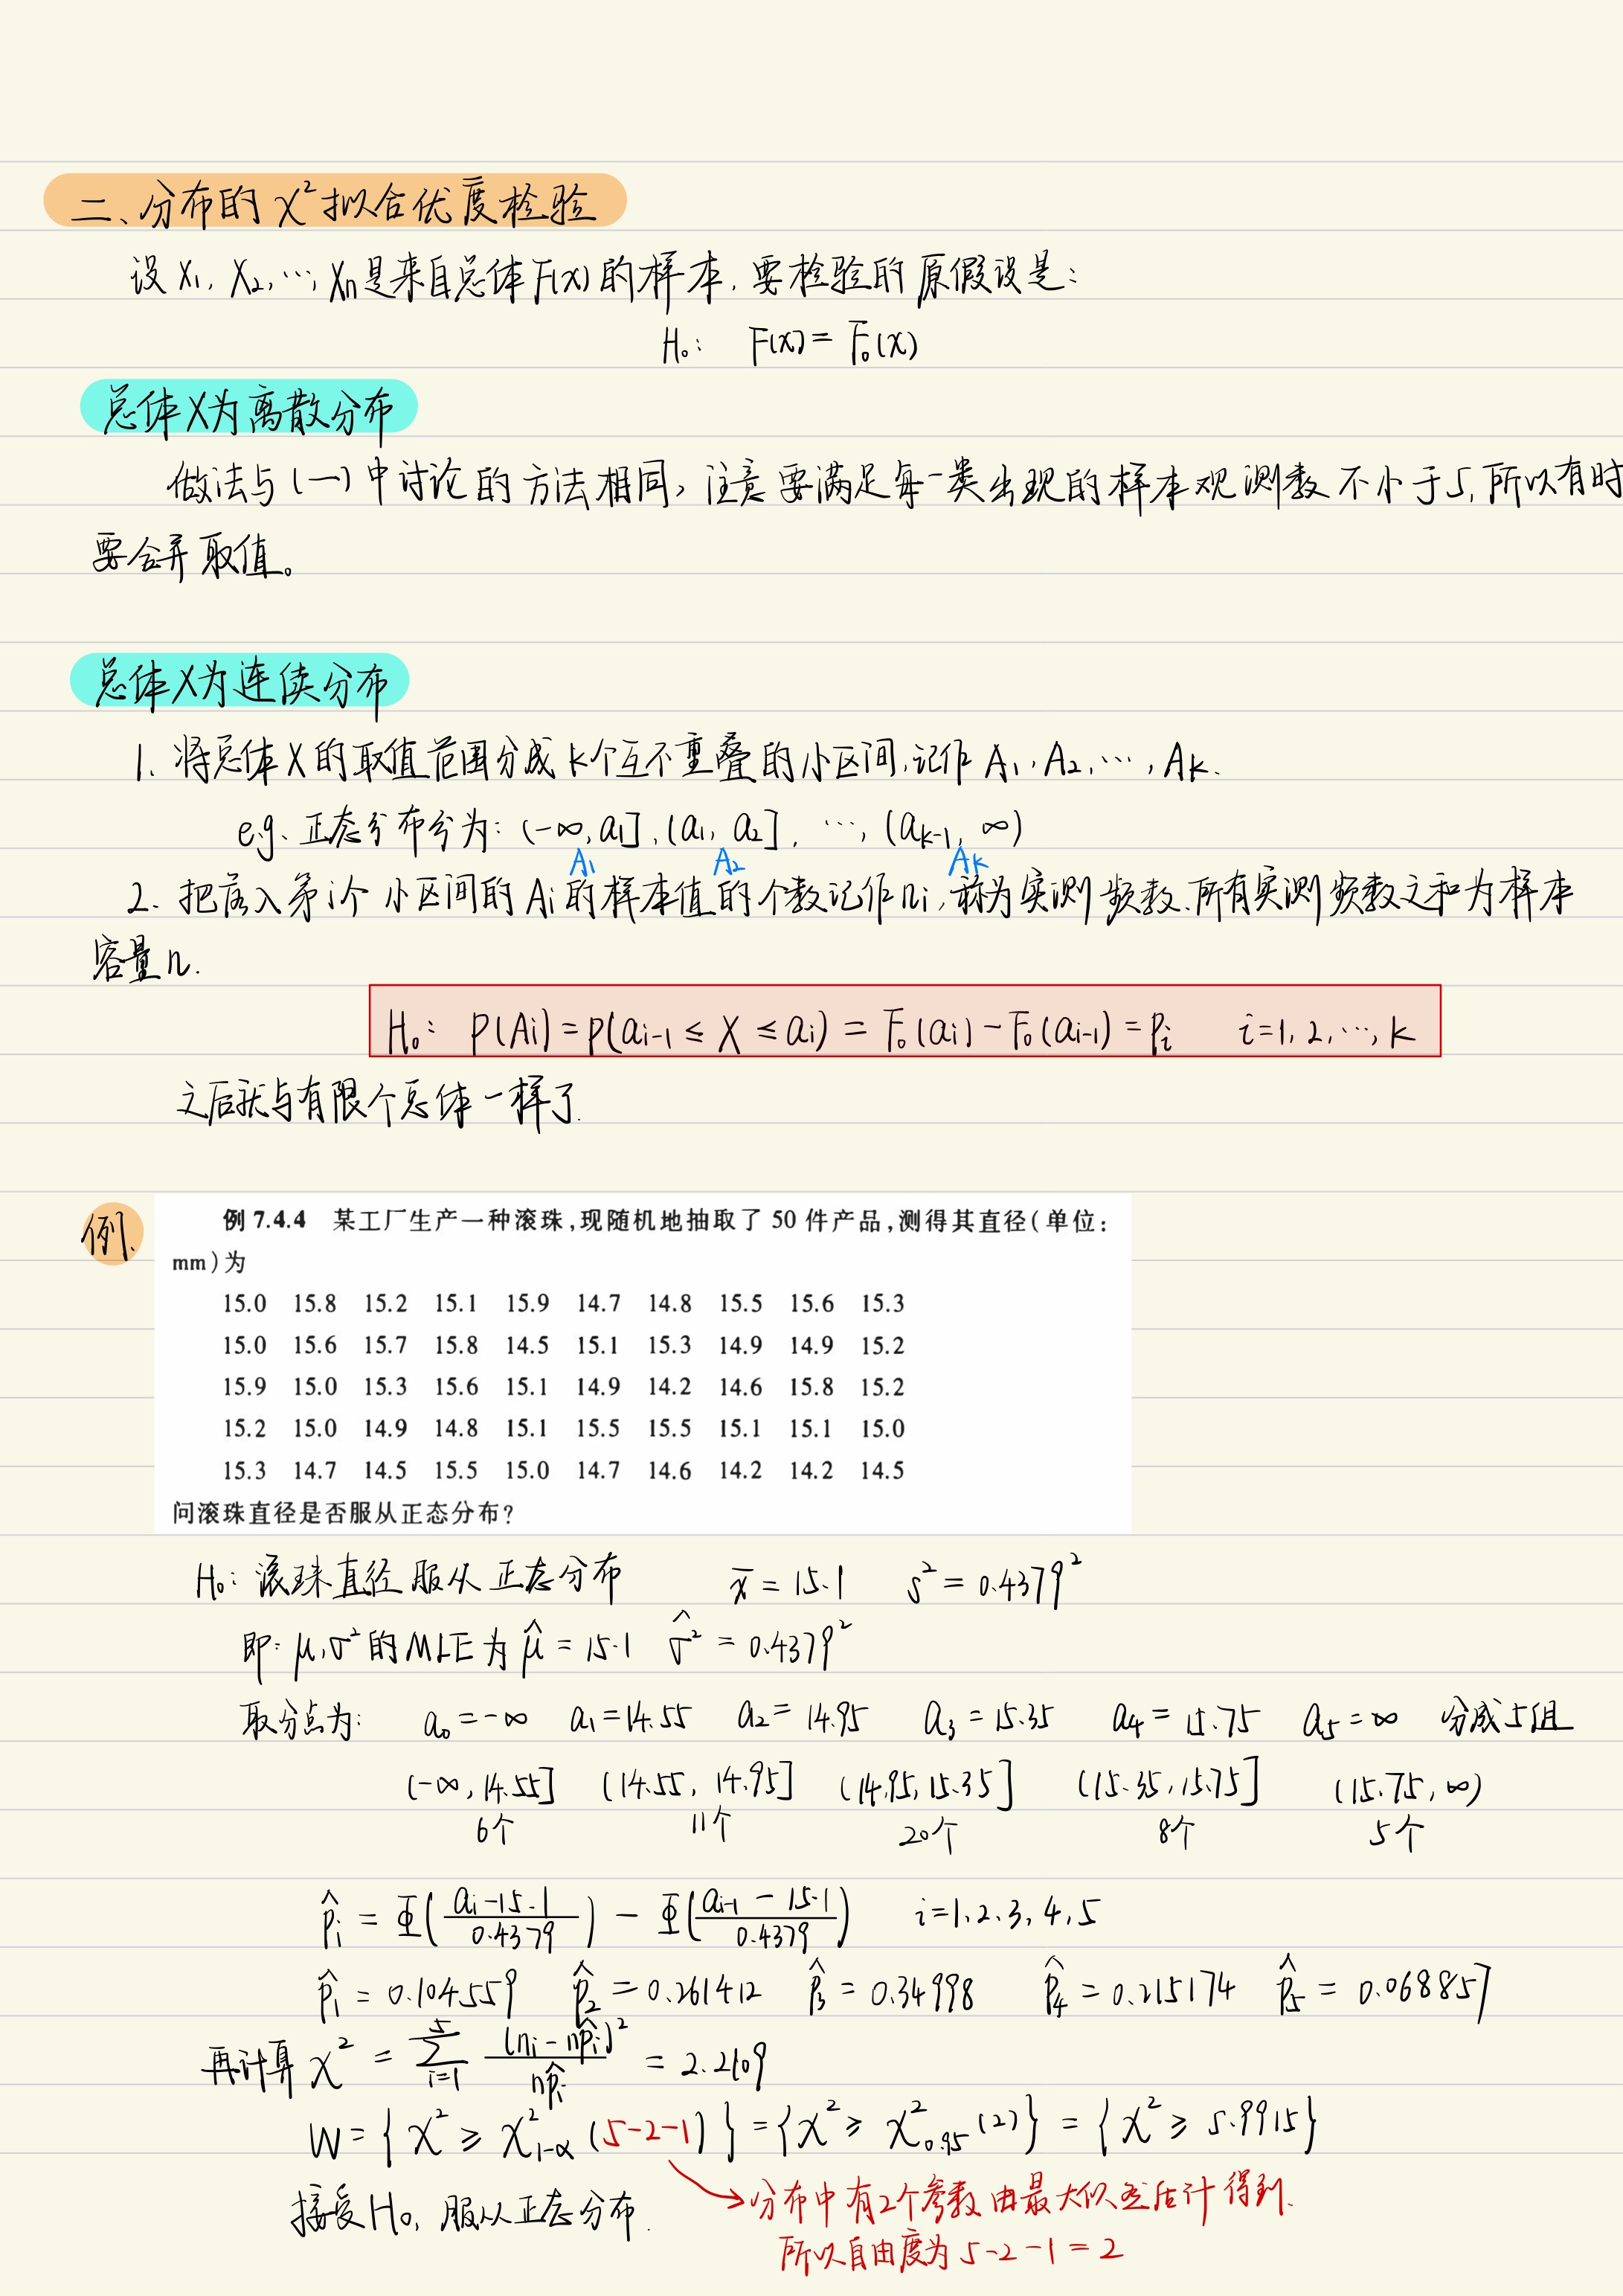 二、分布的 χ² 拟合优度检验
设 X₁, X₂, ⋯, Xₙ是来自总体F(x)的样本, 要检验的原假设是:
H₀: F(x) = F₀(x)
总体X为离散分布
做法与(一)中讨论的方法相同, 注意要满足每一类出现的样本观测数不小于5, 所以有时
要合并取值。
总体X为连续分布
1. 将总体X的取值范围分成k个互不重叠的小区间, 记作 A₁, A₂, ⋯, Aₖ.
e.g. 正态分布分为: (-∞, a₁], (a₁, a₂], ⋯, (aₖ₋₁, ∞)
A₁ A₂ Aₖ
2. 把落入第i个小区间的Aᵢ的样本值的个数记作nᵢ, 称为实测频数. 所有实测频数之和为样本
容量n.
H₀: P(Aᵢ) = P(aᵢ₋₁ ≤ X ≤ aᵢ) = F₀(aᵢ) - F₀(aᵢ₋₁) = pᵢ i=1, 2, ⋯, k
之后就与有限个总体一样了.
例.
例 7.4.4 某工厂生产一种滚珠,现随机地抽取了 50 件产品,测得其直径(单位:
mm)为
15.0 15.8 15.2 15.1 15.9 14.7 14.8 15.5 15.6 15.3
15.0 15.6 15.7 15.8 14.5 15.1 15.3 14.9 14.9 15.2
15.9 15.0 15.3 15.6 15.1 14.9 14.2 14.6 15.8 15.2
15.2 15.0 14.9 14.8 15.1 15.5 15.5 15.1 15.1 15.0
15.3 14.7 14.5 15.5 15.0 14.7 14.6 14.2 14.2 14.5
问滚珠直径是否服从正态分布?
H₀: 滚珠直径服从正态分布 x̄ = 15.1 s² = 0.4379²
即: μ, σ²的MLE为 μ̂ = 15.1 σ̂² = 0.4379²
取分点为: a₀ = -∞ a₁ = 14.55 a₂ = 14.95 a₃ = 15.35 a₄ = 15.75 a₅ = ∞ 分成5组
(-∞, 14.55] (14.55, 14.95] (14.95, 15.35] (15.35, 15.75] (15.75, ∞)
6个 11个 20个 8个 5个
p̂ᵢ = Φ((aᵢ-15.1)/0.4379) - Φ((aᵢ₋₁-15.1)/0.4379) i=1, 2, 3, 4, 5
p̂₁ = 0.104559 p̂₂ = 0.261412 p̂₃ = 0.34998 p̂₄ = 0.215174 p̂₅ = 0.068857
再计算 χ² = Σᵢ₌₁⁵ (nᵢ - np̂ᵢ)²/np̂ᵢ = 2.2109
W = { χ² ≥ χ²₁₋α (5-2-1) } = { χ² ≥ χ²₀.₉₅ (2) } = { χ² ≥ 5.9915 }
接受H₀, 服从正态分布.
分布中有2个参数由最大似然估计得到.
所以自由度为 5-2-1 = 2